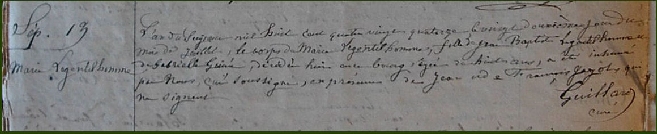 Sép. 13
Marie Legentilhomme
L'an de Seigneur mil huit cent quatre vingt quatorze le vingt deuxième jour du
mois de Juillet, le corps de Marie Legentilhomme, fille de Jean Baptiste Legentilhomme et
de Gabrielle décédée hier au bourg âgée de huit ans, a été inhumé
par Nous, curé soussigné, en présence de Jean et de François qui
ne signent
Guillard
curé